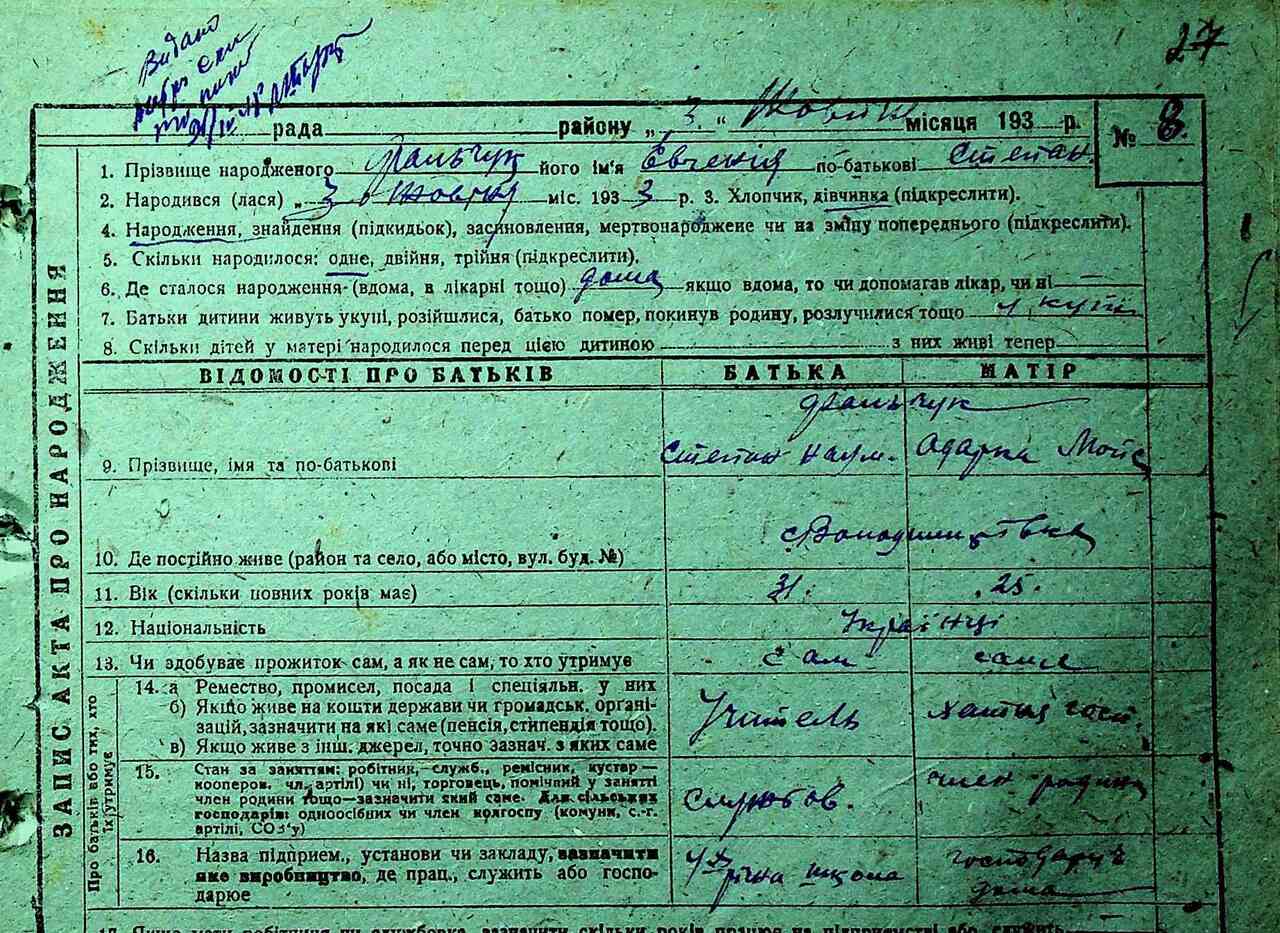 27
Видано
рада района „ 3. “ Жовтня місяця 193 р.
№ 8.
ЗАПИС АКТА ПРО НАРОДЖЕННЯ
1. Прізвище народженого Фальчук його ім'я Євгенія по-батькові Степан.
2. Народився (лася) „ 3 Жовтня міс. 193 3 р. 3. Хлопчик, дівчинка (підкреслити).
4. Народження, знайдення (підкидьок), засиновлення, мертвонароджене чи на зміну попереднього (підкреслити).
5. Скільки народилося: одне, двійня, трійня (підкреслити).
6. Де сталося народження (вдома, в лікарні тощо) дома якщо вдома, то чи допомагав лікар, чи ні
7. Батьки дитини живуть укупі, розійшлися, батько помер, покинув родину, розлучилися тощо у купі
8. Скільки дітей у матері народилося перед цією дитиною з них живі тепер
ВІДОМОСТІ ПРО БАТЬКІВ БАТЬКА МАТІР
Фальчук
9. Прізвище, імя та по-батькові Степан Наум. Одарка Мойс
10. Де постійно живе (район та село, або місто, вул. буд. №)
11. Вік (скільки повних років має) 31. 25.
12. Національність Українці
13. Чи здобуває прожиток сам, а як не сам, то хто утримує сам сама
Про батьків або тих, хто їх утримує
14. а Ремество, промисел, посада і спеціяльн. у них
б) Якщо живе на кошти держави чи громадськ. органі-
зацій, зазначити на які саме (пенсія, стипендія тощо).
в) Якщо живе з інш. джерел, точно зазнач. з яких саме
Учитель хатня госп.
15. Стан за заняттям: робітник, служб., ремісник, кустар—
кооперов. чл. артілі) чи ні, торговець, помічний у занятті
член родини тощо—зазначити який саме. Для сільських
господарів: одноосібних чи член колгоспу (комуни, с.-г.
артілі, СОЗ'у)
службов. член родини
16. Назва підприєм., установи чи закладу, зазначити
яке виробництво, де прац., служить або госпо-
дарює
школа господарує
дома